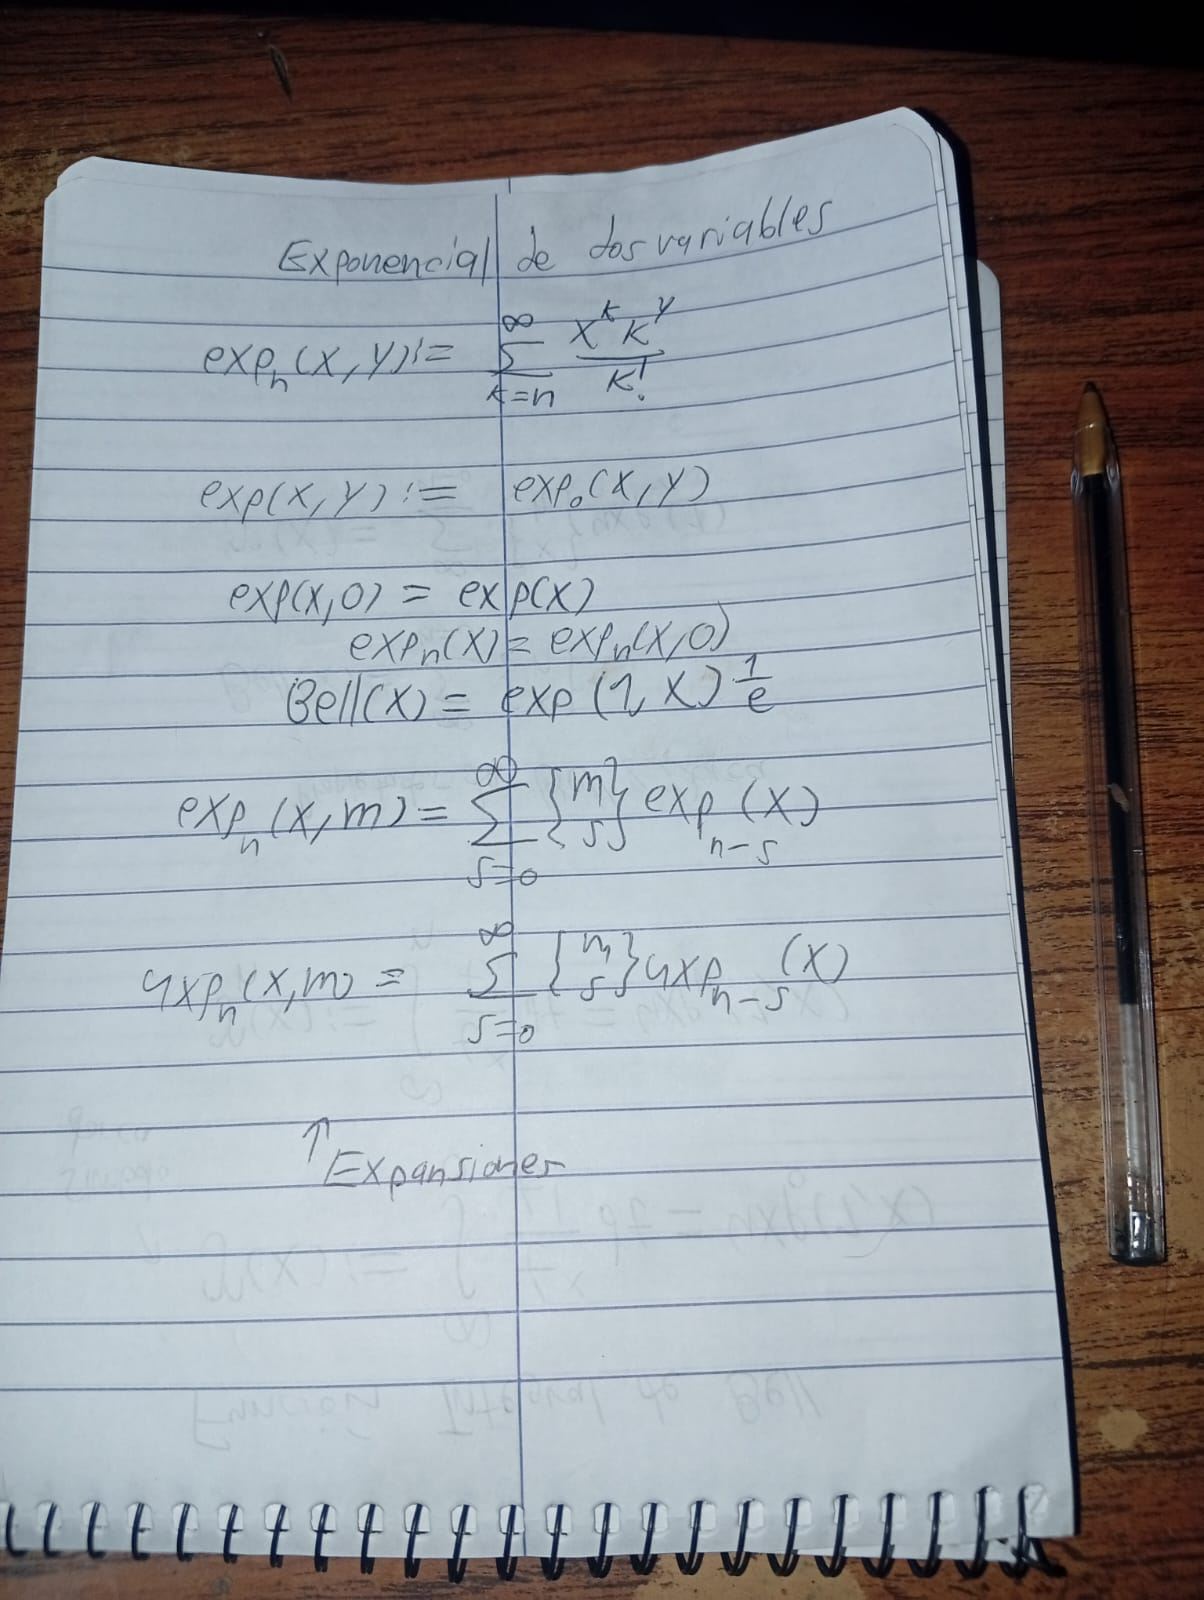 Exponencial de dos variables
expₙ(x, y) := ∑_{k=n}^{∞} x^k k^y / k!
exp(x, y) := exp₀(x, y)
exp(x,0) = exp(x)
expₙ(x) = expₙ(x,0)
Bell(x) = exp(1, x) 1/e
expₙ(x, m) = ∑_{s=0}^{∞} {m s} exp_{n-s}(x)
ɥxpₙ(x,m) = ∑_{s=0}^{∞} {m s} ɥxp_{n-s}(x)
↑ Expansiones